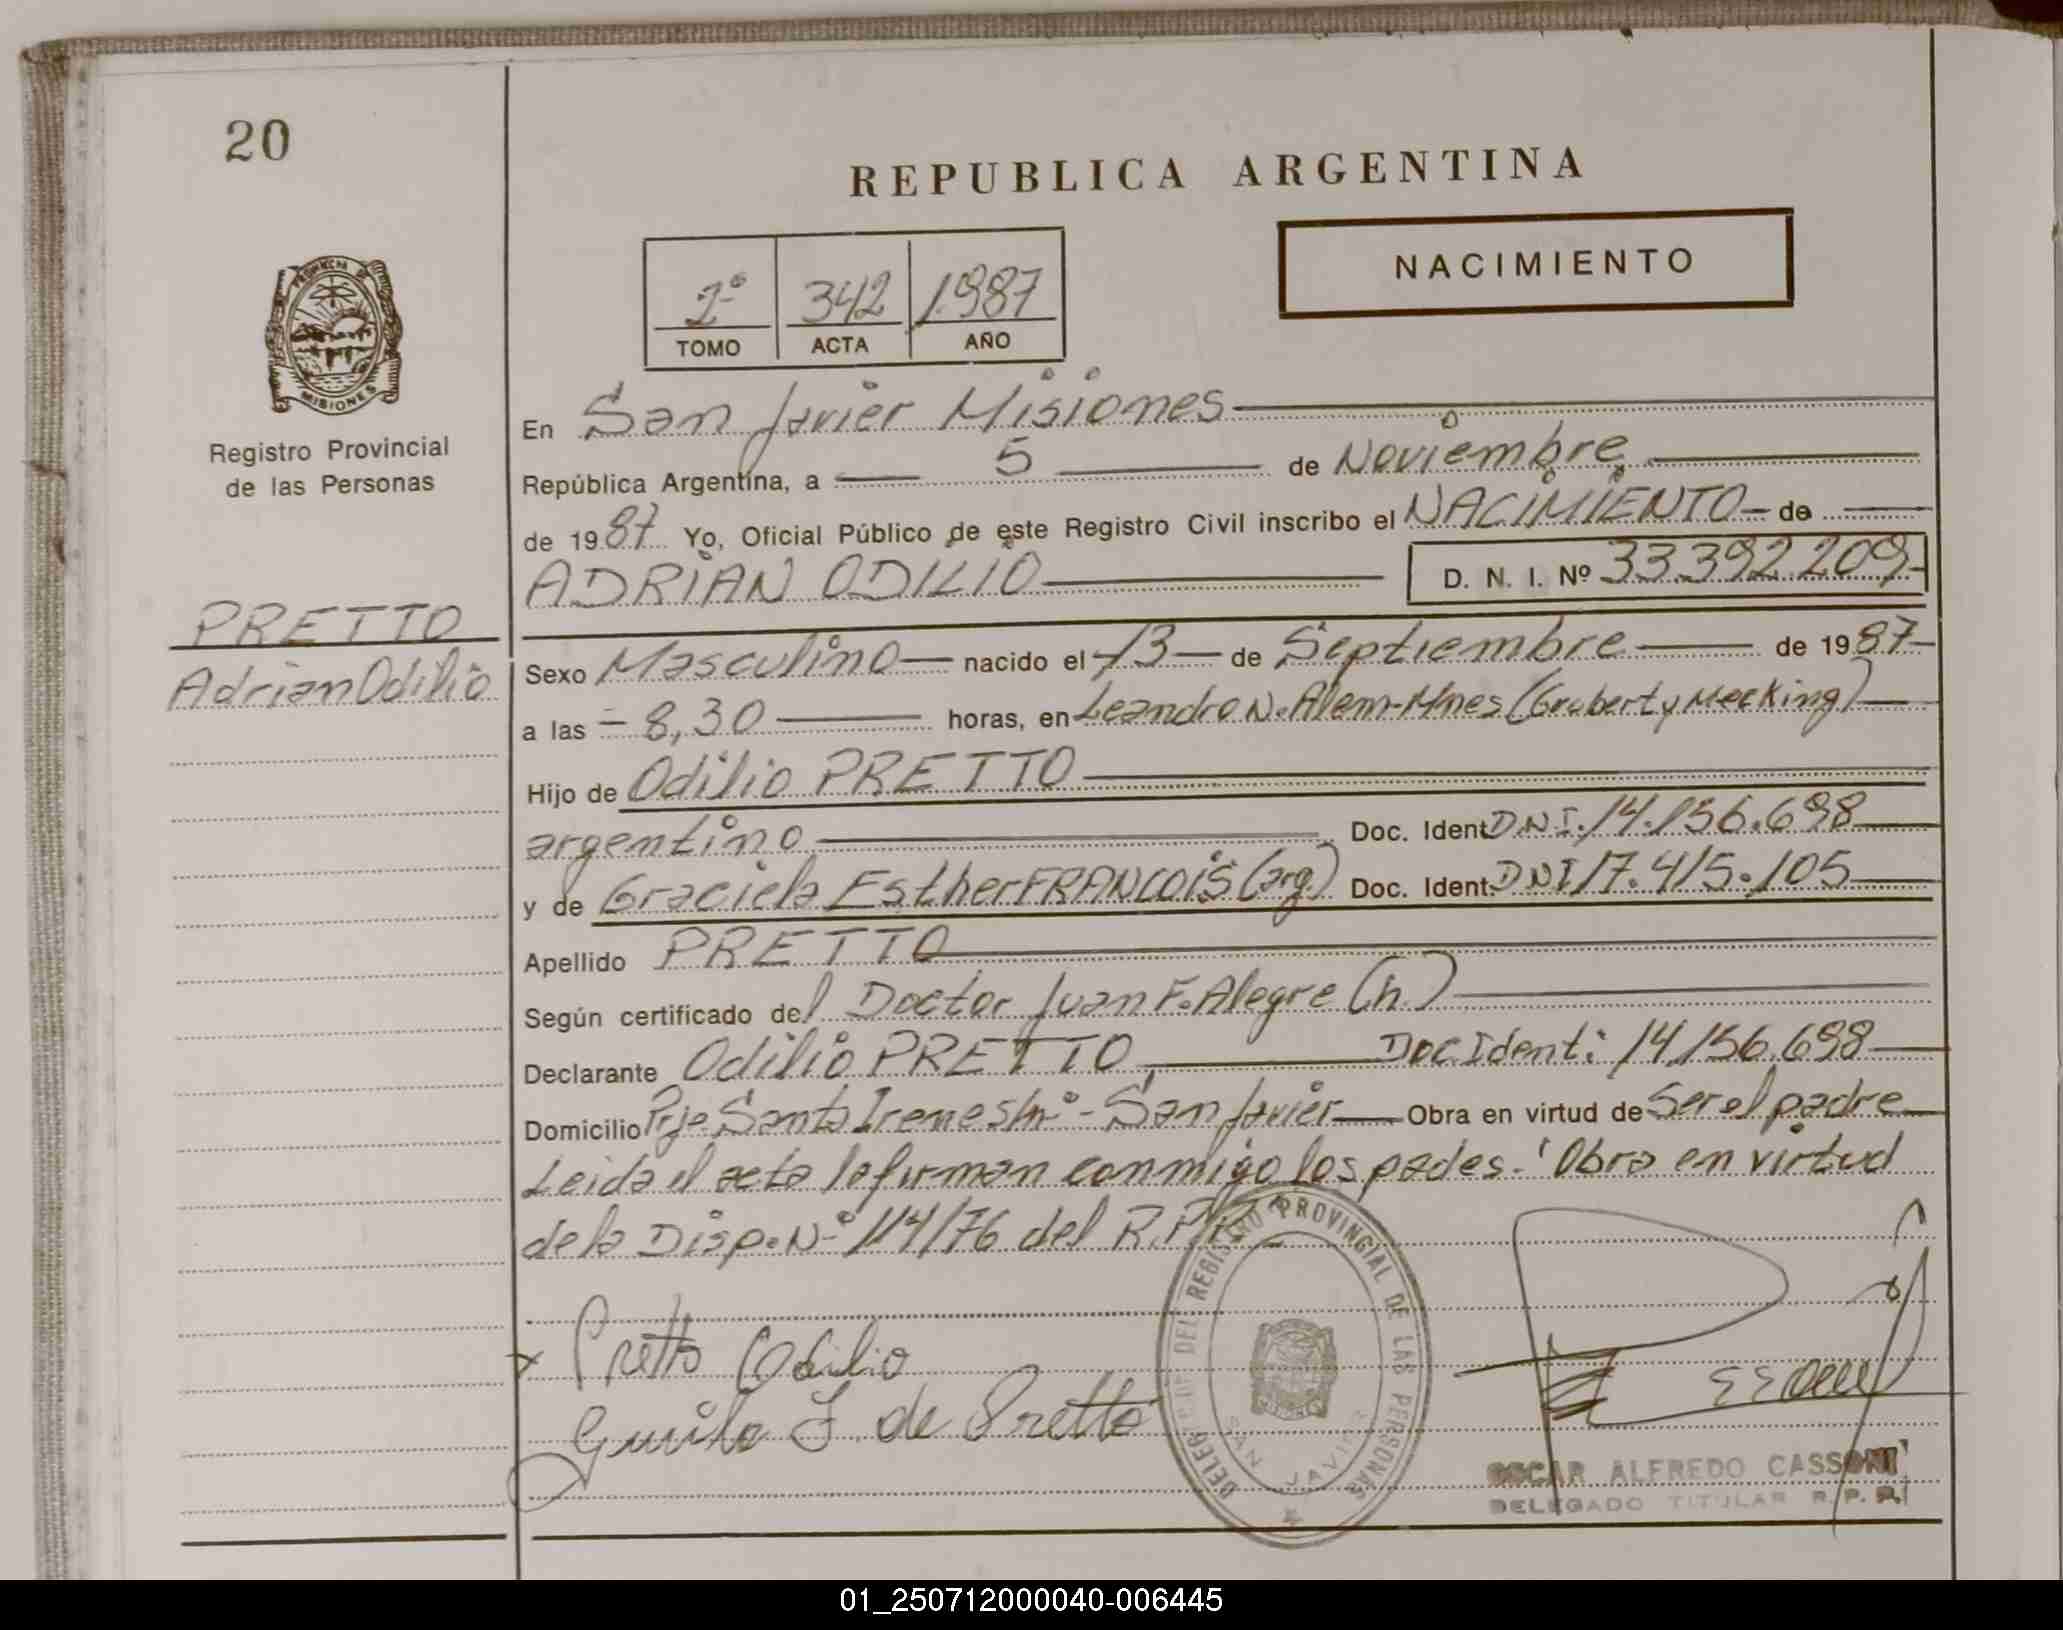 20
REPUBLICA ARGENTINA
NACIMIENTO
2º 342 1987
TOMO ACTA AÑO
PROVINCIA DE MISIONES
Registro Provincial
de las Personas
PRETTO
Adrian Odilio
En San Javier Misiones
República Argentina, a 5 de Noviembre
de 1987 Yo, Oficial Público de este Registro Civil inscribo el NACIMIENTO de
ADRIAN ODILIO D. N. I. Nº 33.392.209
Sexo Masculino nacido el 13 de Septiembre de 1987
a las 8,30 horas, en Leandro N. Alem-Mnes (Grubert y Mecking)
Hijo de Odilio PRETTO
argentino Doc. Ident. D.N.I. 14.156.698
y de Graciela Esther FRANCOIS (arg.) Doc. Ident. DNI 17.415.105
Apellido PRETTO
Según certificado del Doctor Juan F. Alegre (h.)
Declarante Odilio PRETTO Doc. Ident: 14.156.698
Domicilio Pje. Santa Irene s/nº - San Javier Obra en virtud de Ser el padre
Leida el acta la firman conmigo los pades.- Obra en virtud
de la Disp. Nº 114/76 del R.P.P.
Pretto Odilio
de Pretto
DELEG. DEL REGISTRO PROVINCIAL DE LAS PERSONAS
SAN JAVIER
OSCAR ALFREDO CASSONI
DELEGADO TITULAR R. P. P.
01_250712000040-006445